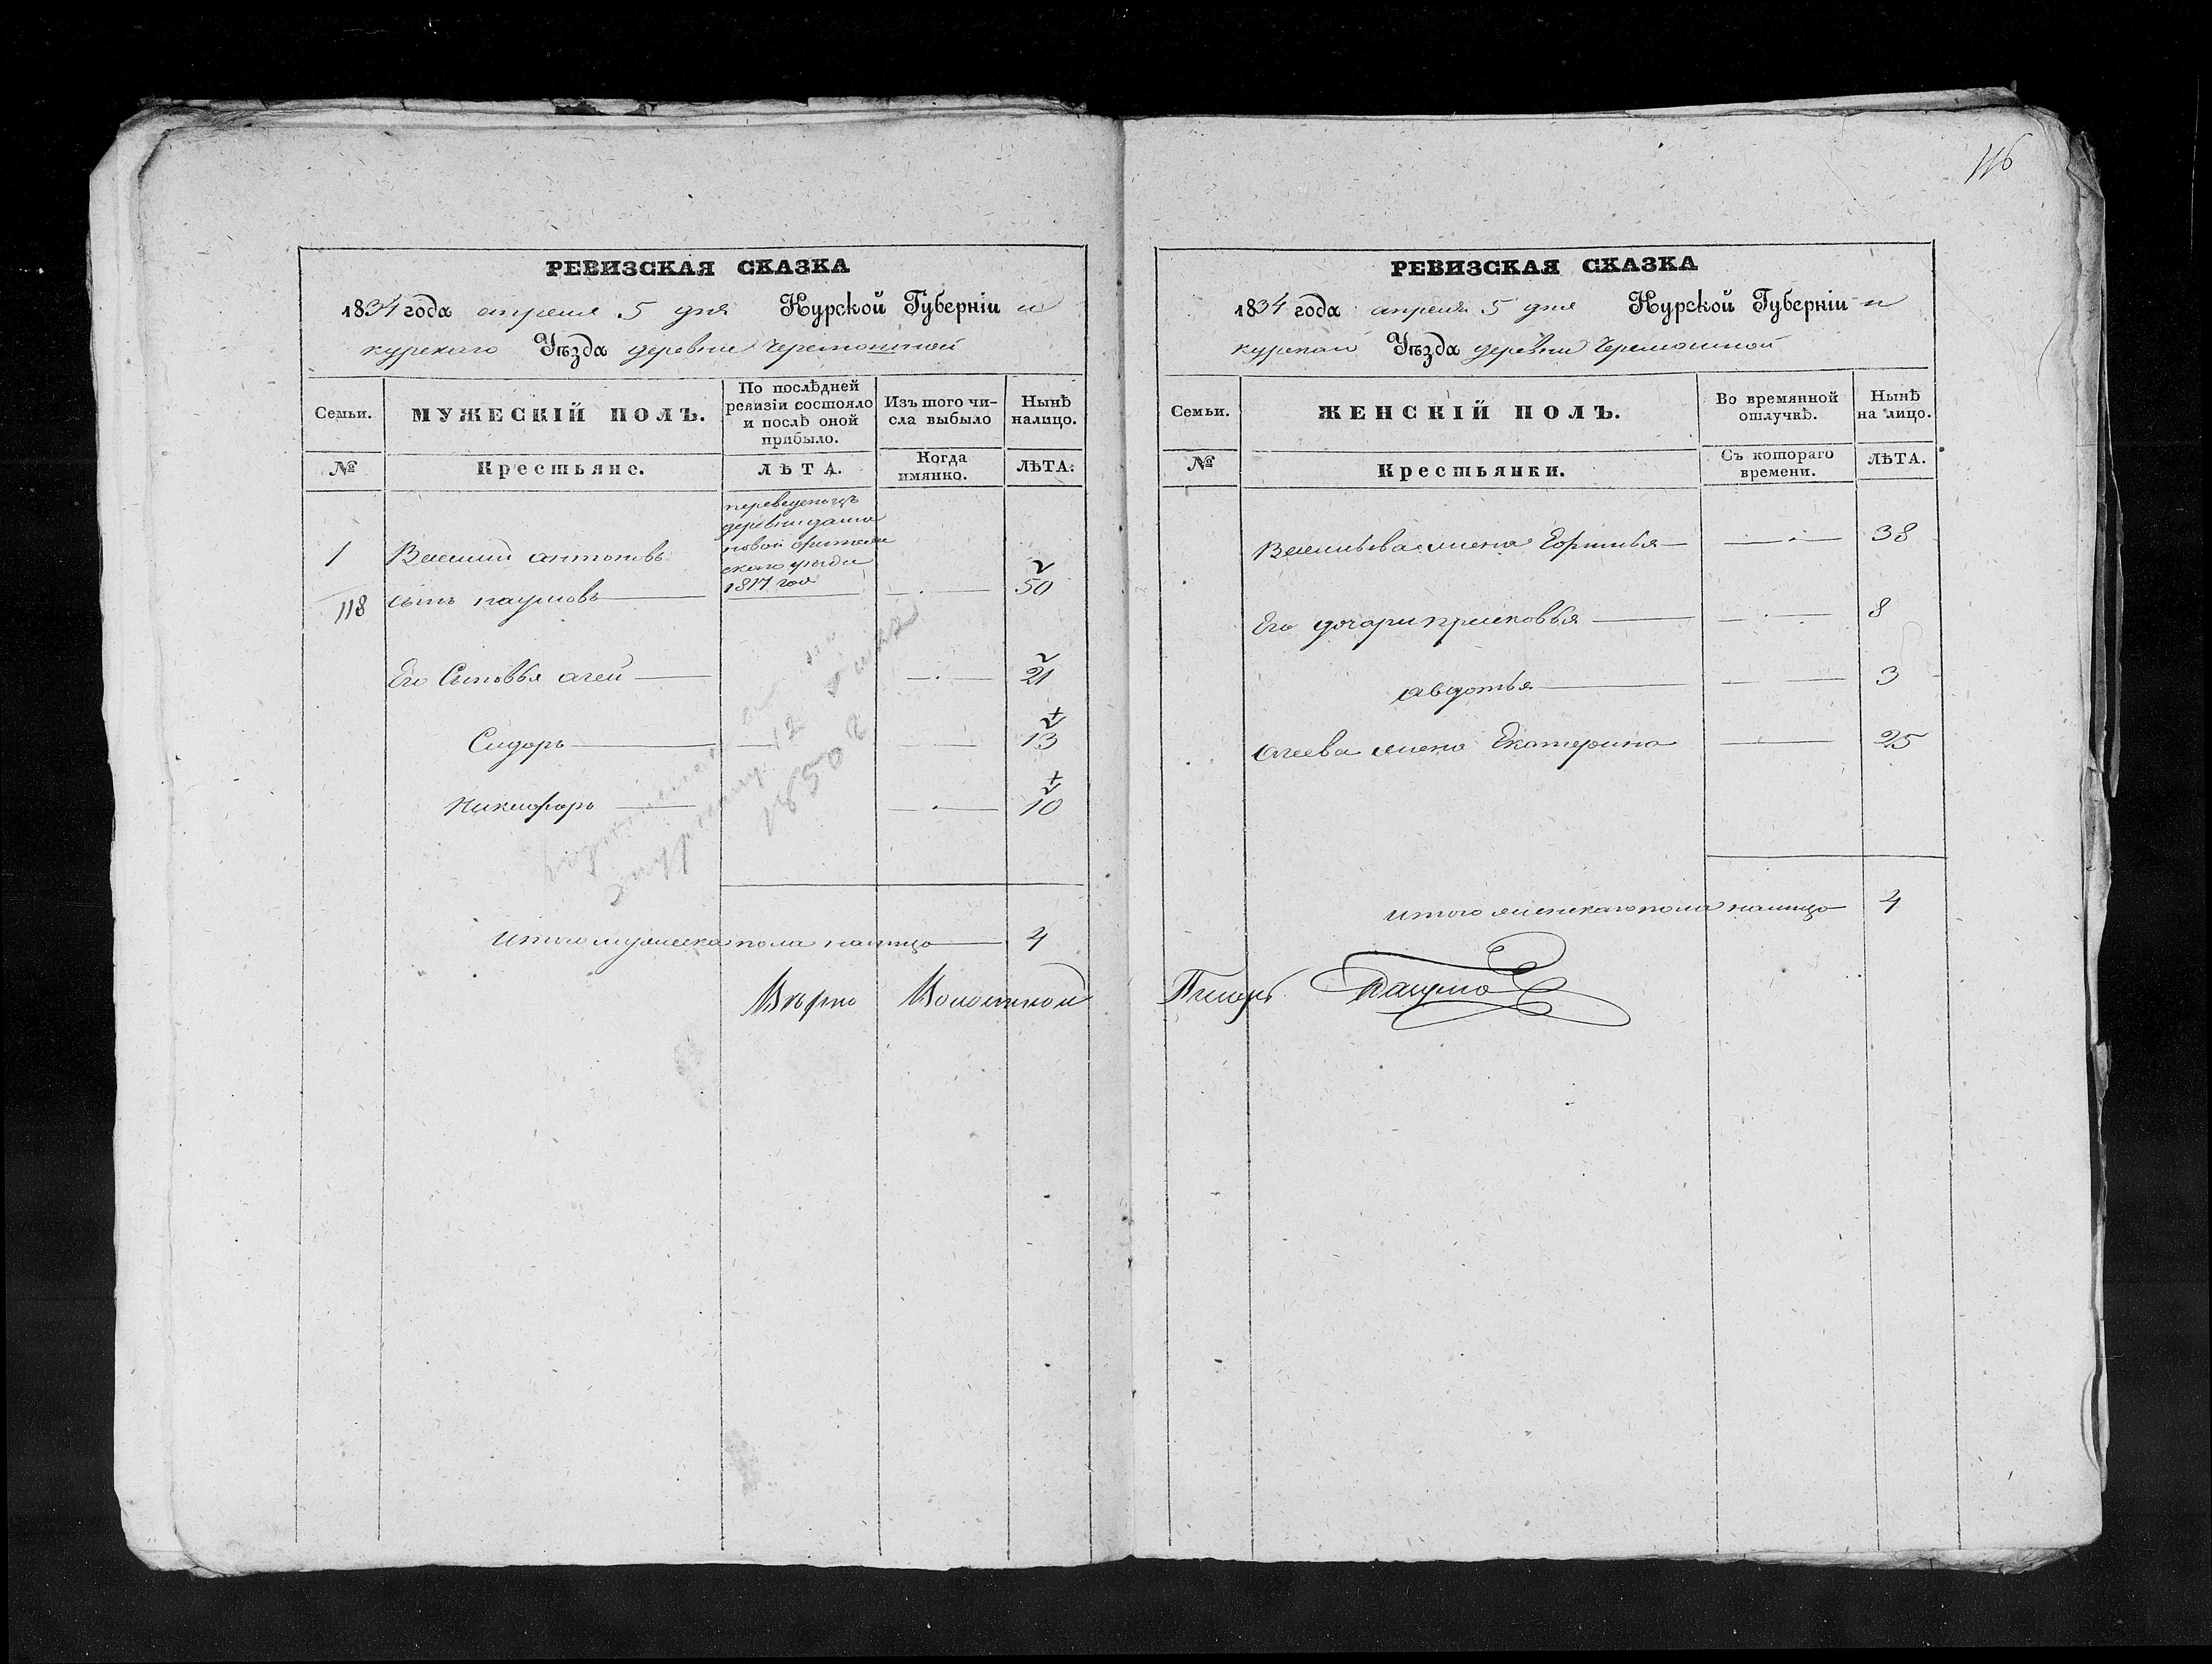 116
РЕВИЗСКАЯ СКАЗКА
1834 года апреля 5 дня Курской Губерніи и
курскаго Уѣзда деревни Черемошной
Семьи.
МУЖЕСКІЙ ПОЛЪ.
По послѣдней
ревизіи состояло
и послѣ оной
прибыло.
Изъ того чи-
сла выбыло
Нынѣ
налицо.
№
Крестьяне.
ЛѢТА.
Когда
имянно.
ЛѢТА.
переведен изъ
деревни
новой
скаго уезда
1817 год
1 Василий антоновъ
118 сынъ наумовъ 50
Его Сыновья агей 21
Сидоръ 13
Никифоръ 10
12
1850
Итого мужеска пола налицо 4
Вѣрно
РЕВИЗСКАЯ СКАЗКА
1834 года апреля 5 дня Курской Губерніи и
курскаго Уѣзда деревни Черемошной
Семьи.
ЖЕНСКІЙ ПОЛЪ.
Во времянной
отлучкѣ.
Нынѣ
на лицо.
№
Крестьянки.
Съ котораго
времени.
ЛѢТА.
Васильева жена 38
Его дочери прасковья 8
авдотья 3
агеева жена Екатерина 25
итого женскаго пола налицо 4
Писарь